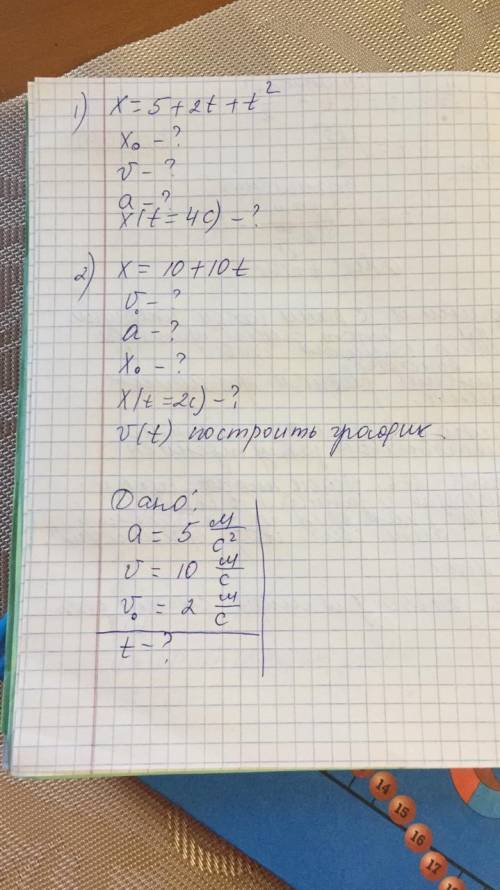 1) x = 5 + 2t + t²
x₀ - ?
v - ?
a - ?
x(t = 4c) - ?
2) x = 10 + 10t
v₀ - ?
a - ?
x₀ - ?
x(t = 2c) - ?
v(t) построить график.
Дано:
a = 5 м/с²
v = 10 м/с
v₀ = 2 м/с
t - ?
14
15
16
17
18